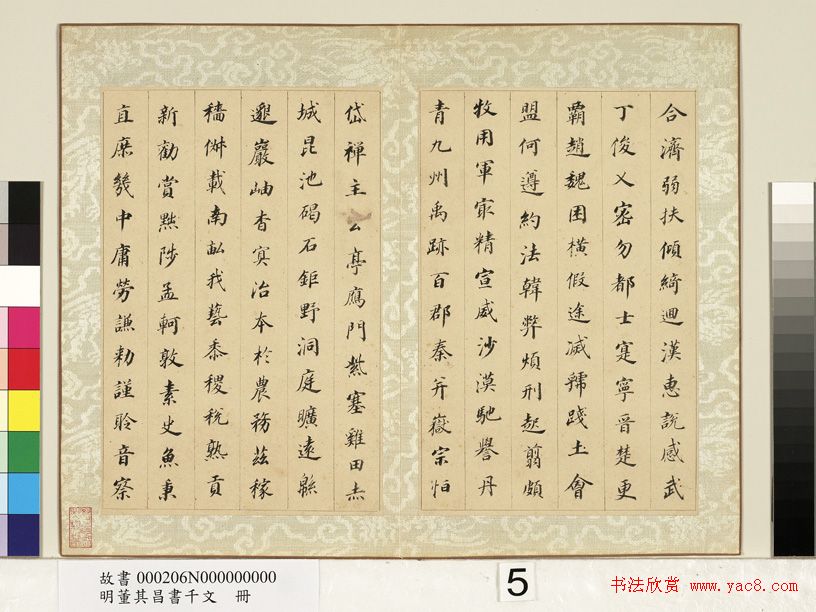 合濟弱扶傾綺迴漢惠說感武
丁俊乂密勿都士寔寧晉楚更
霸趙魏困橫假途滅虢踐土會
盟何遵約法韓弊煩刑起翦頗
牧用軍最精宣威沙漠馳譽丹
青九州禹跡百郡秦并嶽宗恒
岱禪主云亭鴈門紫塞雞田赤
城昆池碣石鉅野洞庭曠遠緜
邈巖岫杳冥治本於農務茲稼
穡俶載南畝我藝黍稷稅熟貢
新勸賞黜陟孟軻敦素史魚秉
直庶幾中庸勞謙勅謹聆音察
故書 000206N000000000
明董其昌書千文 冊
5
书法欣赏 www.yac8.com